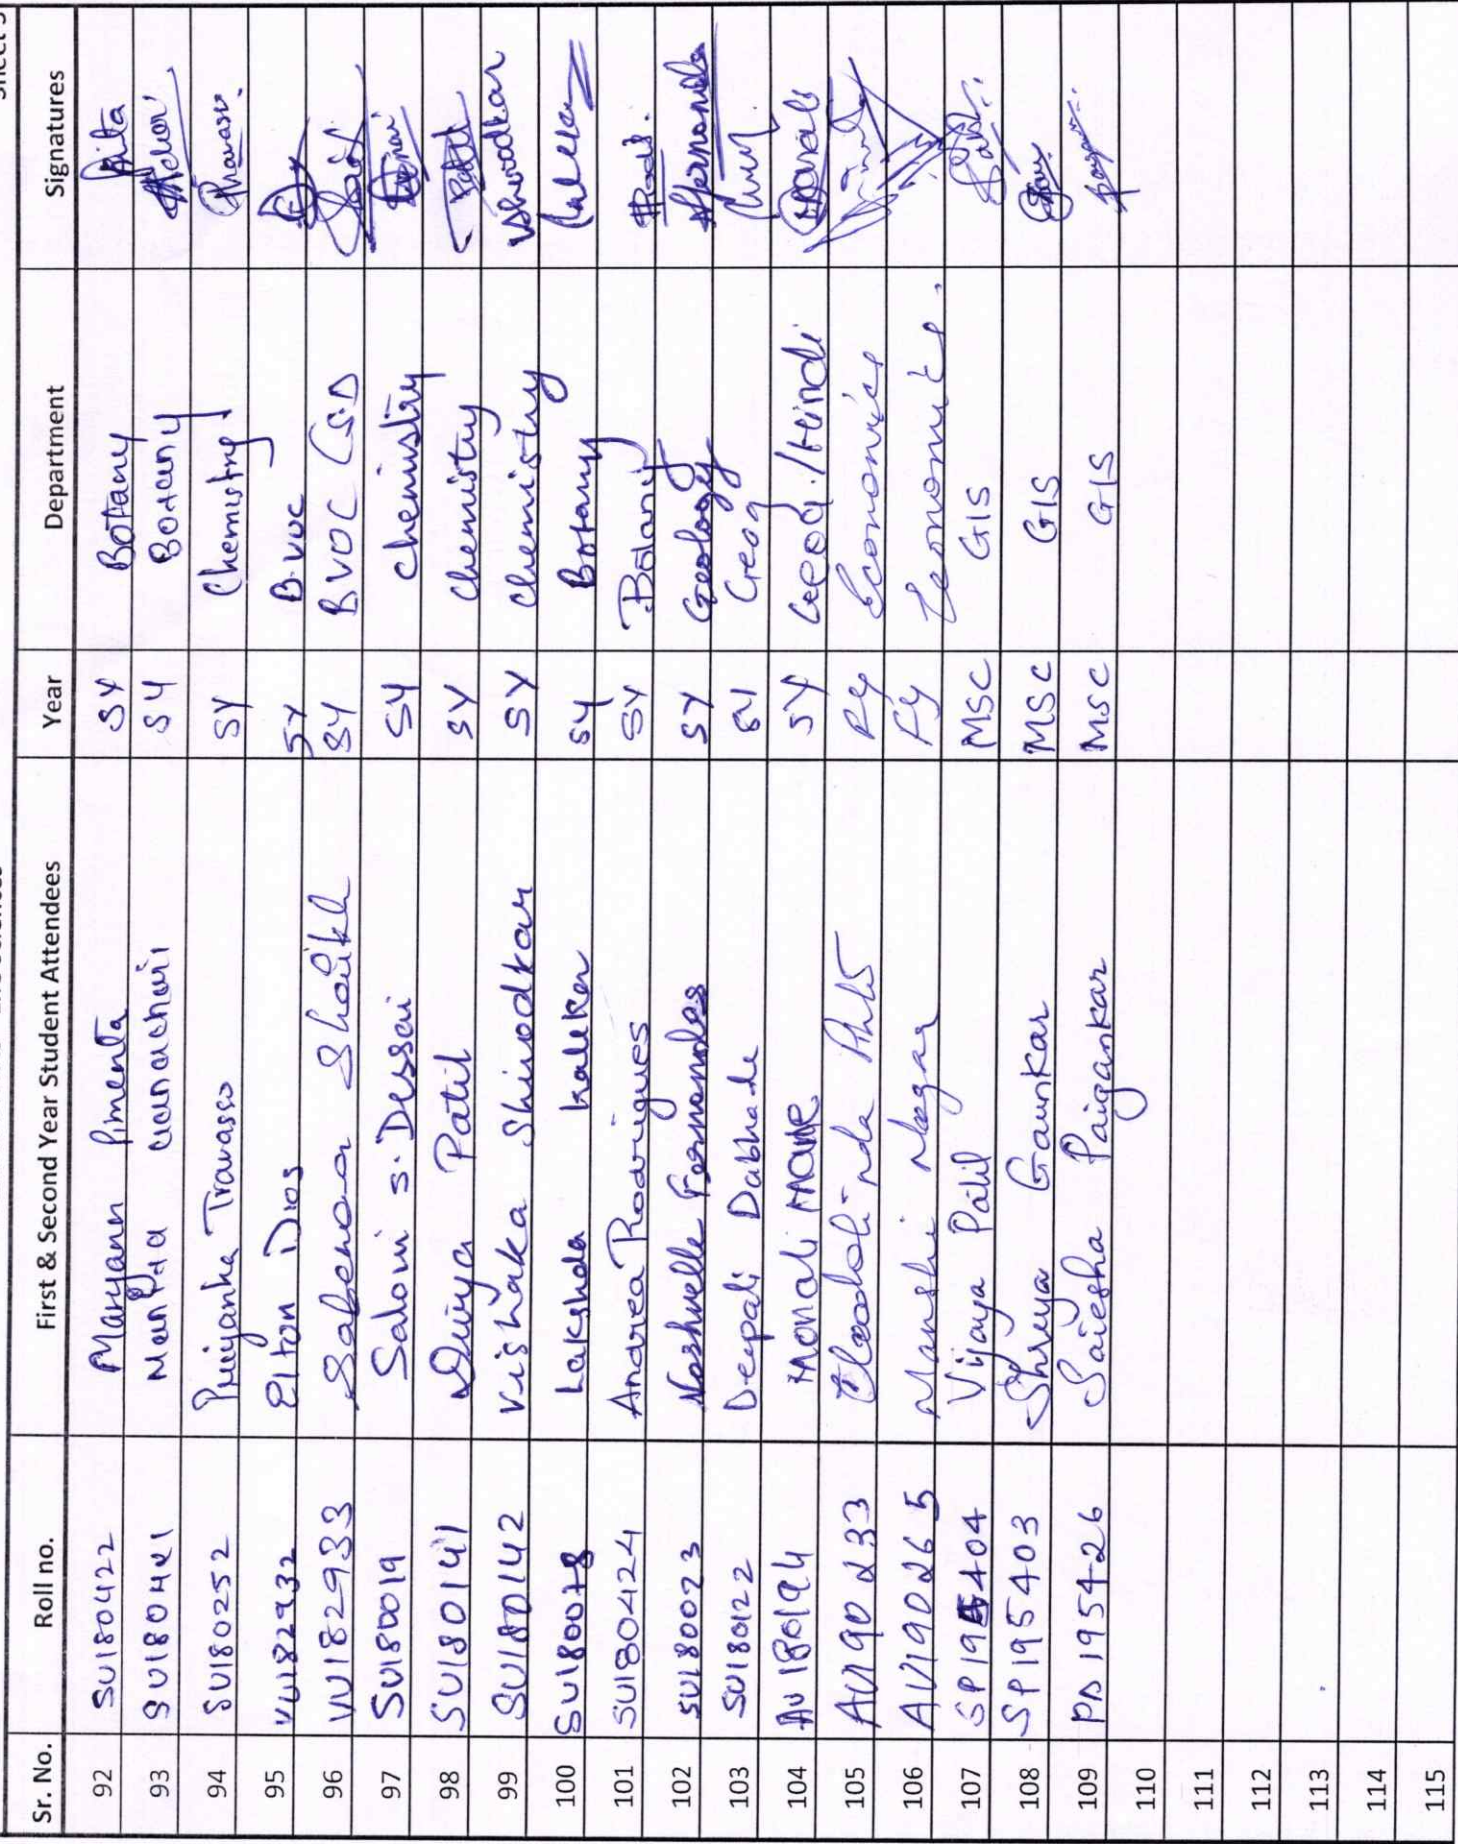 Sr. No. Roll no. First & Second Year Student Attendees Year Department Signatures
92 SU180422 Maryann Pimenta SY Botany
93 SU180421 SY Botany
94 SU180252 Priyanka Travasso SY Chemistry Travasso
95 VU182932 Elton Dias SY B.voc
96 VU182933 Safeena Shaikh SY BVOC
97 SU180019 Saloni S. Dessai SY Chemistry
98 SU180141 Divya Patil SY Chemistry Patil
99 SU180142 Vishaka Shirodkar SY Chemistry VShirodkar
100 SU180078 Lakshda Kalekar SY Botany
101 SU180424 Andrea Rodrigues SY Botany
102 SU180023 Noshvelle Fernandes SY Geology Afernandes
103 SU180122 Deepali Dabhade SY Geog
104 AU180194 Monali Mane SY Geog./Hindi Monali
105 AU190233 FY Economics
106 AU190265 Manshi Nagar FY Economics.
107 SP195404 Vijaya Patil MSC GIS
108 SP195403 Shreya Gaunkar MSC GIS
109 PA195426 Saiesha Paigankar MSC GIS
110
111
112
113
114
115